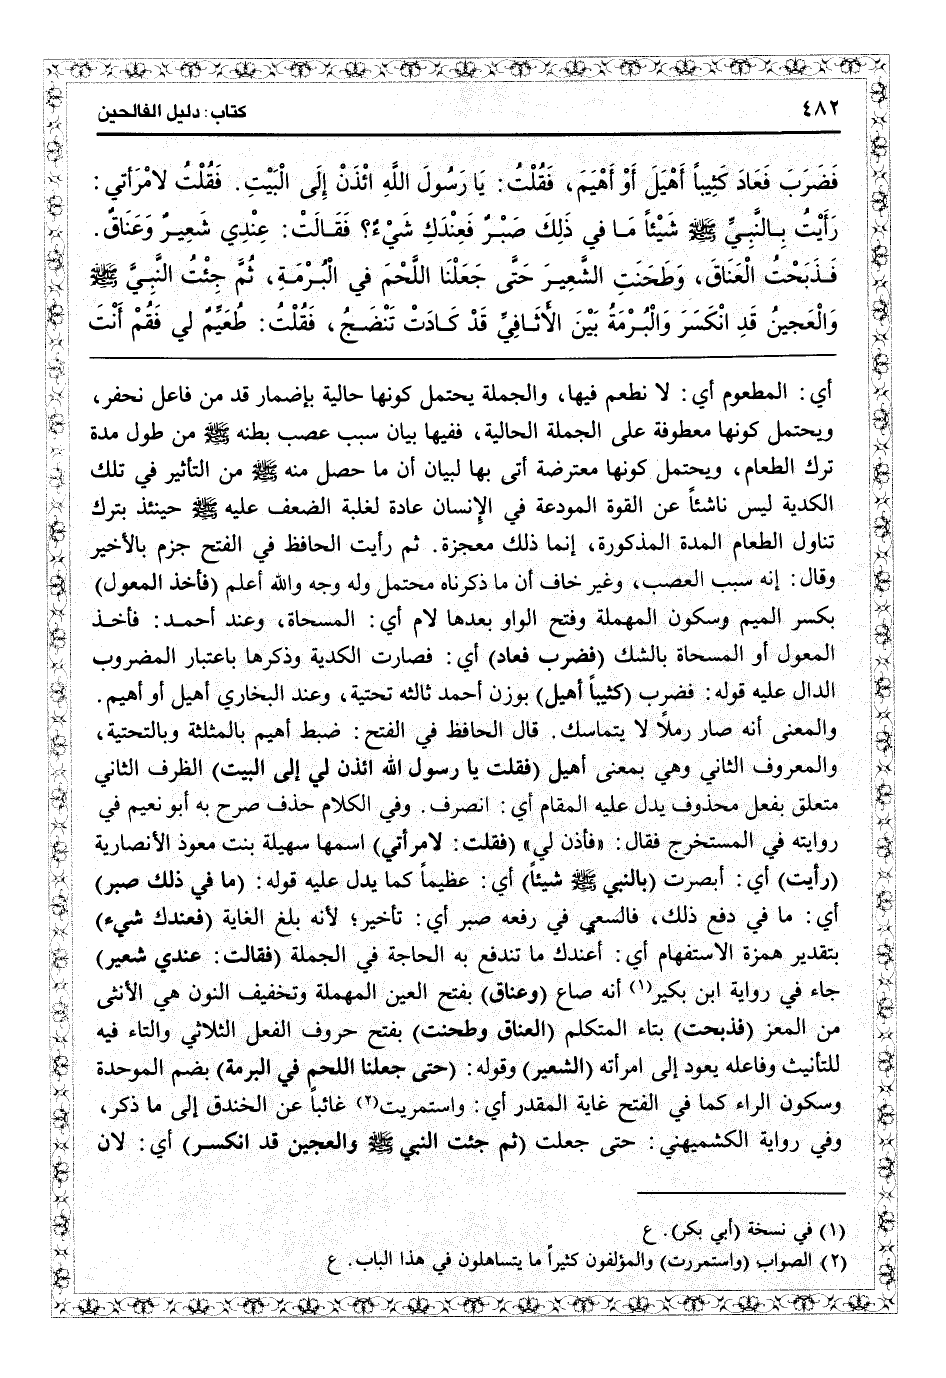 ٤٨٢
كتاب: دليل الفالحين
فَضَرَبَ فَعَادَ كَثِيباً أَهْيَلَ أَوْ أَهْيَمَ، فَقُلْتُ: يَا رَسُولَ اللَّهِ ائْذَنْ إِلَى الْبَيْتِ. فَقُلْتُ لامْرَأتي:
رَأَيْتُ بِالنَّبِيِّ ﷺ شَيْئاً مَا في ذَلِكَ صَبْرٌ فَعِنْدَكِ شَيْءٌ؟ فَقَالَتْ: عِنْدِي شَعِيرٌ وَعَنَاقٌ.
فَذَبَحْتُ الْعَنَاقَ، وَطَحَنَتِ الشَّعِيرَ حَتَّى جَعَلْنَا اللَّحْمَ في الْبُرْمَةِ، ثُمَّ جِئْتُ النَّبِيَّ ﷺ
وَالْعَجِينُ قَدِ انْكَسَرَ وَالْبُرْمَةُ بَيْنَ الْأَثَافِيِّ قَدْ كَادَتْ تَنْضَجُ، فَقُلْتُ: طُعَيِّمٌ لي فَقُمْ أَنْتَ
أي: المطعوم أي: لا نطعم فيها، والجملة يحتمل كونها حالية بإضمار قد من فاعل نحفر،
ويحتمل كونها معطوفة على الجملة الحالية، ففيها بيان سبب عصب بطنه ﷺ من طول مدة
ترك الطعام، ويحتمل كونها معترضة أتى بها لبيان أن ما حصل منه ﷺ من التأثير في تلك
الكدية ليس ناشئاً عن القوة المودعة في الإنسان عادة لغلبة الضعف عليه ﷺ حينئذ بترك
تناول الطعام المدة المذكورة، إنما ذلك معجزة. ثم رأيت الحافظ في الفتح جزم بالأخير
وقال: إنه سبب العصب، وغير خاف أن ما ذكرناه محتمل وله وجه والله أعلم (فأخذ المعول)
بكسر الميم وسكون المهملة وفتح الواو بعدها لام أي: المسحاة، وعند أحمد: فأخذ
المعول أو المسحاة بالشك (فضرب فعاد) أي: فصارت الكدية وذكرها باعتبار المضروب
الدال عليه قوله: فضرب (كثيباً أهيل) بوزن أحمد ثالثه تحتية، وعند البخاري أهيل أو أهيم.
والمعنى أنه صار رملاً لا يتماسك. قال الحافظ في الفتح: ضبط أهيم بالمثلثة وبالتحتية،
والمعروف الثاني وهي بمعنى أهيل (فقلت يا رسول الله ائذن لي إلى البيت) الظرف الثاني
متعلق بفعل محذوف يدل عليه المقام أي: انصرف. وفي الكلام حذف صرح به أبو نعيم في
روايته في المستخرج فقال: «فأذن لي» (فقلت: لامرأتي) اسمها سهيلة بنت معوذ الأنصارية
(رأيت) أي: أبصرت (بالنبي ﷺ شيئاً) أي: عظيماً كما يدل عليه قوله: (ما في ذلك صبر)
أي: ما في دفع ذلك، فالسعي في رفعه صبر أي: تأخير؛ لأنه بلغ الغاية (فعندك شيء)
بتقدير همزة الاستفهام أي: أعندك ما تندفع به الحاجة في الجملة (فقالت: عندي شعير)
جاء في رواية ابن بكير(١) أنه صاع (وعناق) بفتح العين المهملة وتخفيف النون هي الأنثى
من المعز (فذبحت) بتاء المتكلم (العناق وطحنت) بفتح حروف الفعل الثلاثي والتاء فيه
للتأنيث وفاعله يعود إلى امرأته (الشعير) وقوله: (حتى جعلنا اللحم في البرمة) بضم الموحدة
وسكون الراء كما في الفتح غاية المقدر أي: واستمريت(٢) غائباً عن الخندق إلى ما ذكر،
وفي رواية الكشميهني: حتى جعلت (ثم جئت النبي ﷺ والعجين قد انكسر) أي: لان
(١) في نسخة (أبي بكر). ع
(٢) الصواب (واستمررت) والمؤلفون كثيراً ما يتساهلون في هذا الباب. ع